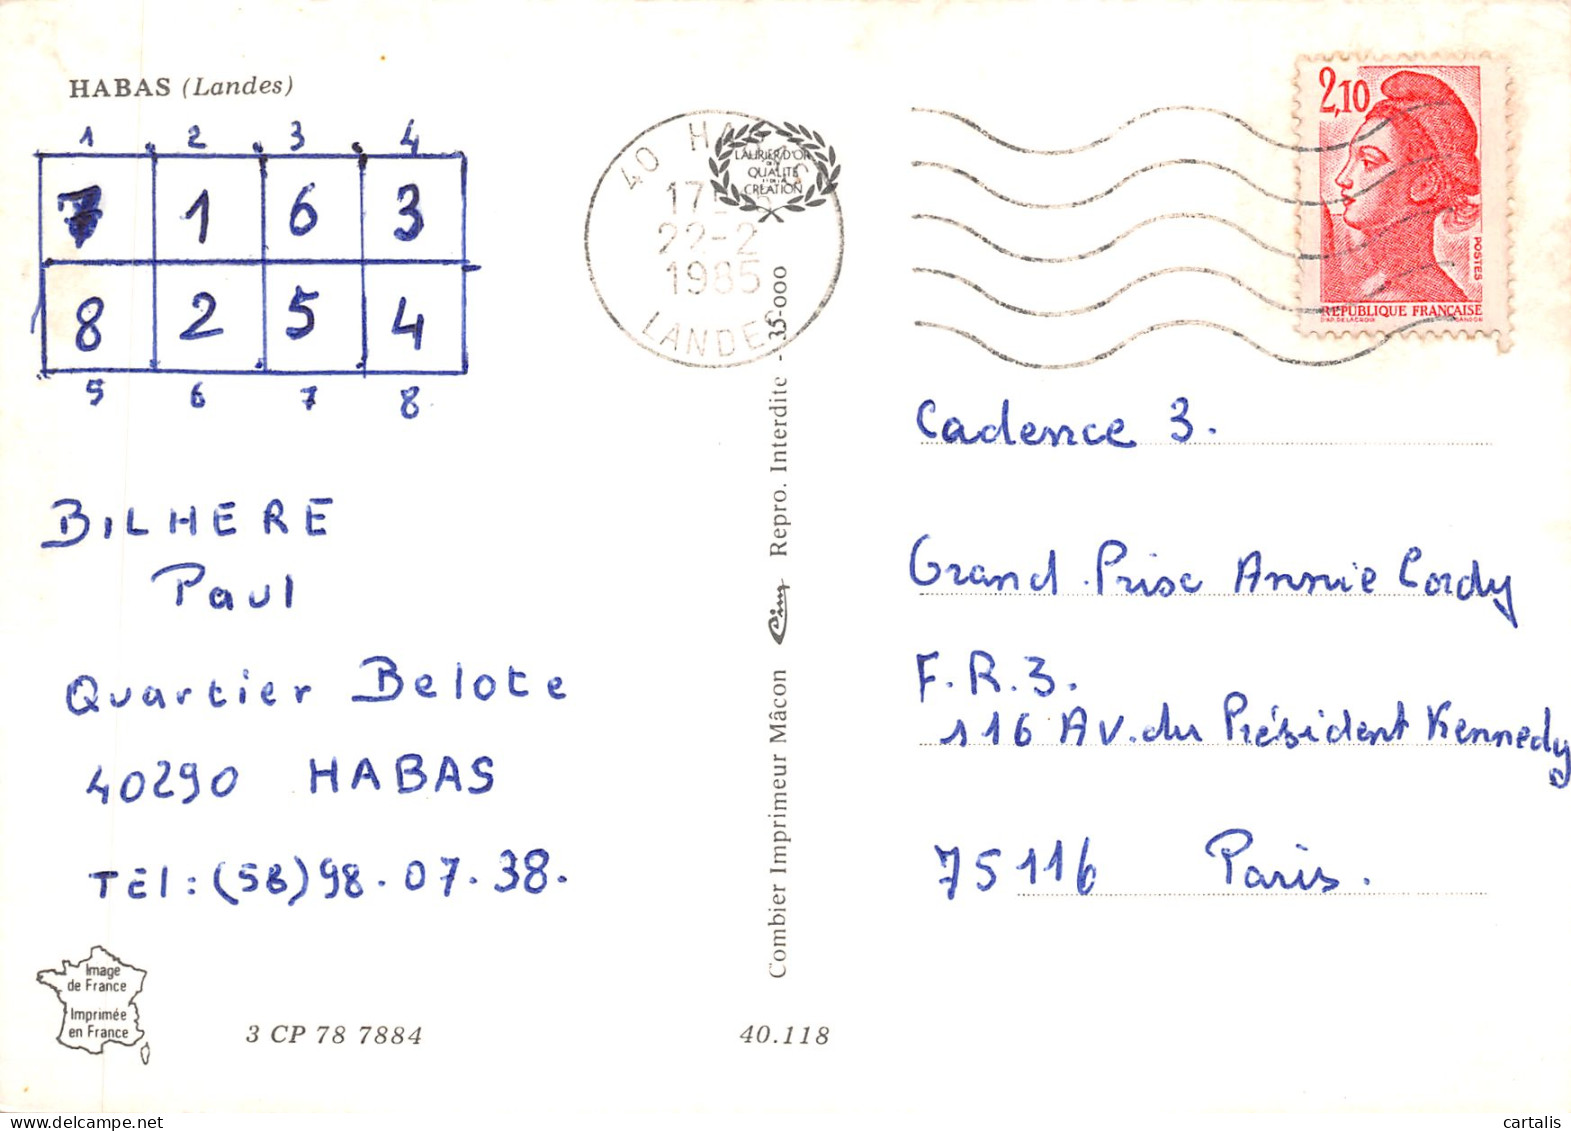 HABAS (Landes)
1 2 3 4
7 1 6 3
8 2 5 4
5 6 7 8
BILHERE
Paul
Quartier Belote
40290 HABAS
TÉl : (58) 98.07.38.
Image
de France
Imprimée
en France
3 CP 78 7884
40.118
Combier Imprimeur Mâcon Cim Repro. Interdite - 35-000
40 HABAS
22-2
1985
LANDES
LAURIER D'OR
QUALITÉ
CRÉATION
2,10
POSTES
RÉPUBLIQUE FRANÇAISE
D'AP. DELACROIX GANDON
Cadence 3.
Grand Prix Annie Cordy
F.R.3.
116 Av. du Président Kennedy
75116 Paris.
cartalis